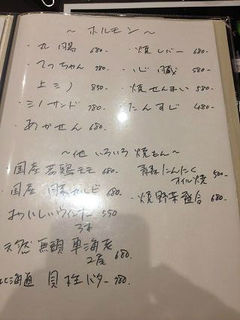 ～ ホルモン ～
・丸腸 680-
・てっちゃん 780-
・上ミノ 850-
・ミノサンド 780-
・あかせん 680-
・焼レバー 680-
・心臓 580-
・焼せんまい 580-
・たんすじ 480-
～他 いろいろ 焼もん～
国産 若鶏モモ 680-
・国産 豚カルビ 680-
おいしいウインナー 550
天然 無頭 車海老 2尾 680-
北海道 貝柱バター 780-
青森にんにくオイル焼 500-
・焼野菜盛合 680-